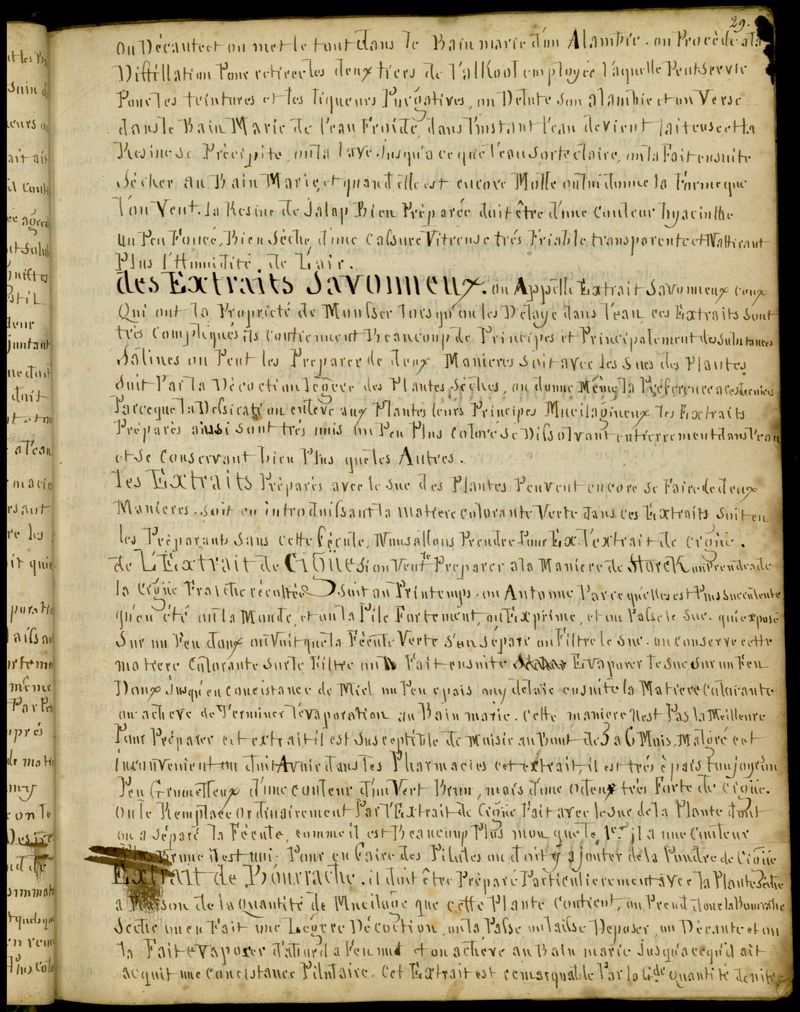 29.
on Décante et on met le tout dans le Bain marie d'un Alambic. on Procède a la
Distillation Pour retirer les deux tiers de l'alkool employée laquelle Peut servir
Pour les teintures et les liqueurs Purgatives, on Delute son alambic et on Verse
dans le Bain Marie de l'eau Froide, dans l'instant l'eau devient laiteuse et la
Resine se Précipite, on la lave Jusqu'a ce que l'eau sorte claire, on la Fait ensuite
Sécher au Bain Marie, et quand elle est encore Molle on lui donne la Forme que
l'on Veut. la Resine de Jalap Bien Préparée doit être d'une Couleur hyacinthe
un Peu Foncé, Bien Sèche, d'une Cassure Vitreuse trés Friable transparente et N'attirant
Plus l'Humidité de l'air.
des Extraits Savonneux. on Appelle Extrait Savonneux ceux
Qui ont la Propriété de Mousser lorsqu'on les Délaye dans l'eau ces Extraits sont
trés Compliqués ils Contiennent Beaucoup de Principes et Principalement des substances
Salines on Peut les Préparer de deux Manieres soit avec les Sucs des Plantes
Soit Par la Décoction légère des Plantes Séches, on donne Même la Préférence a ces derniers
Parceque la Dessication enleve aux Plantes leurs Principes Mucilagineux les Extraits
Préparés ainsi sont trés unis un Peu Plus Coloré se Dissolvant entierrement dans l'eau
et se Conservant bien Plus que les Autres.
les Extraits Préparés avec le Suc des Plantes Peuvent encore se Faire de deux
Manieres. soit en introduissant la matiere colorante Verte dans ces Extraits soit en
les Préparant sans cette fécule, Nous allons Prendre Pour Ex. l'extrait de Cigüe.
de L'Extrait de Cigüe Si on Veut le Preparer a la Maniere de Storck on Prendra de
la Cigüe Fraiche récoltée Soit au Printemps. ou Antonne Parce quelles est Plus Succulente
qu'en été on la Monde, et on la Pile Fortement, on Exprime, et on Passe le Suc. qui exposé
Sur un Feu doux on Voit que la Fécule Verte s'en sépare on Filtre le Suc. on Conserve cette
matiere Colorante Sur le Filtre on Fait ensuite Evaporer le Suc sur un Feu
Doux Jusqu'en Concistance de Miel un Peu epais on y délaie ensuite la Matiere Colorante
on achève de Terminer l'évaporation au Bain marie. Cette maniere N'est Pas la Meilleure
Pour Préparer cet extrait il est Susceptible de Moisir au Bout de 3 a 6 Mois, Malgré cet
inconvenient on doit Avoir dans les Pharmacies cet extrait, il est trés épais toujours un
Peu Grumelleux d'une couleur d'un Vert Brun, mais d'une Odeur trés Forte de Cigüe.
On le Remplace Ordinairement Par l'Extrait de Cigüe Fait avec le Suc de la Plante dont
on a séparé la Fécule, comme il est Beaucoup Plus mou que le 1er il a une Couleur
Brune il est uni, Pour en faire des Pilules on doit y ajouter de la Poudre de Cigüe
Extrait de Bourrache. il doit être Préparé Particulierement avec la Plante Sèche
a Raison de la quantité de Mucilage que cette Plante Contient, on Prend donc la Bourrache
Sèche on en Fait une Légère Décoction, on la Passe on laisse Deposer, on Décante et on
la Fait evaporer d'abord a Feu nud et on achève au Bain marie jusqu'a ce qu'il ait
acquit une Concistance Pilulaire. Cet Extrait est remarquable Par la Gde quantité de nitre